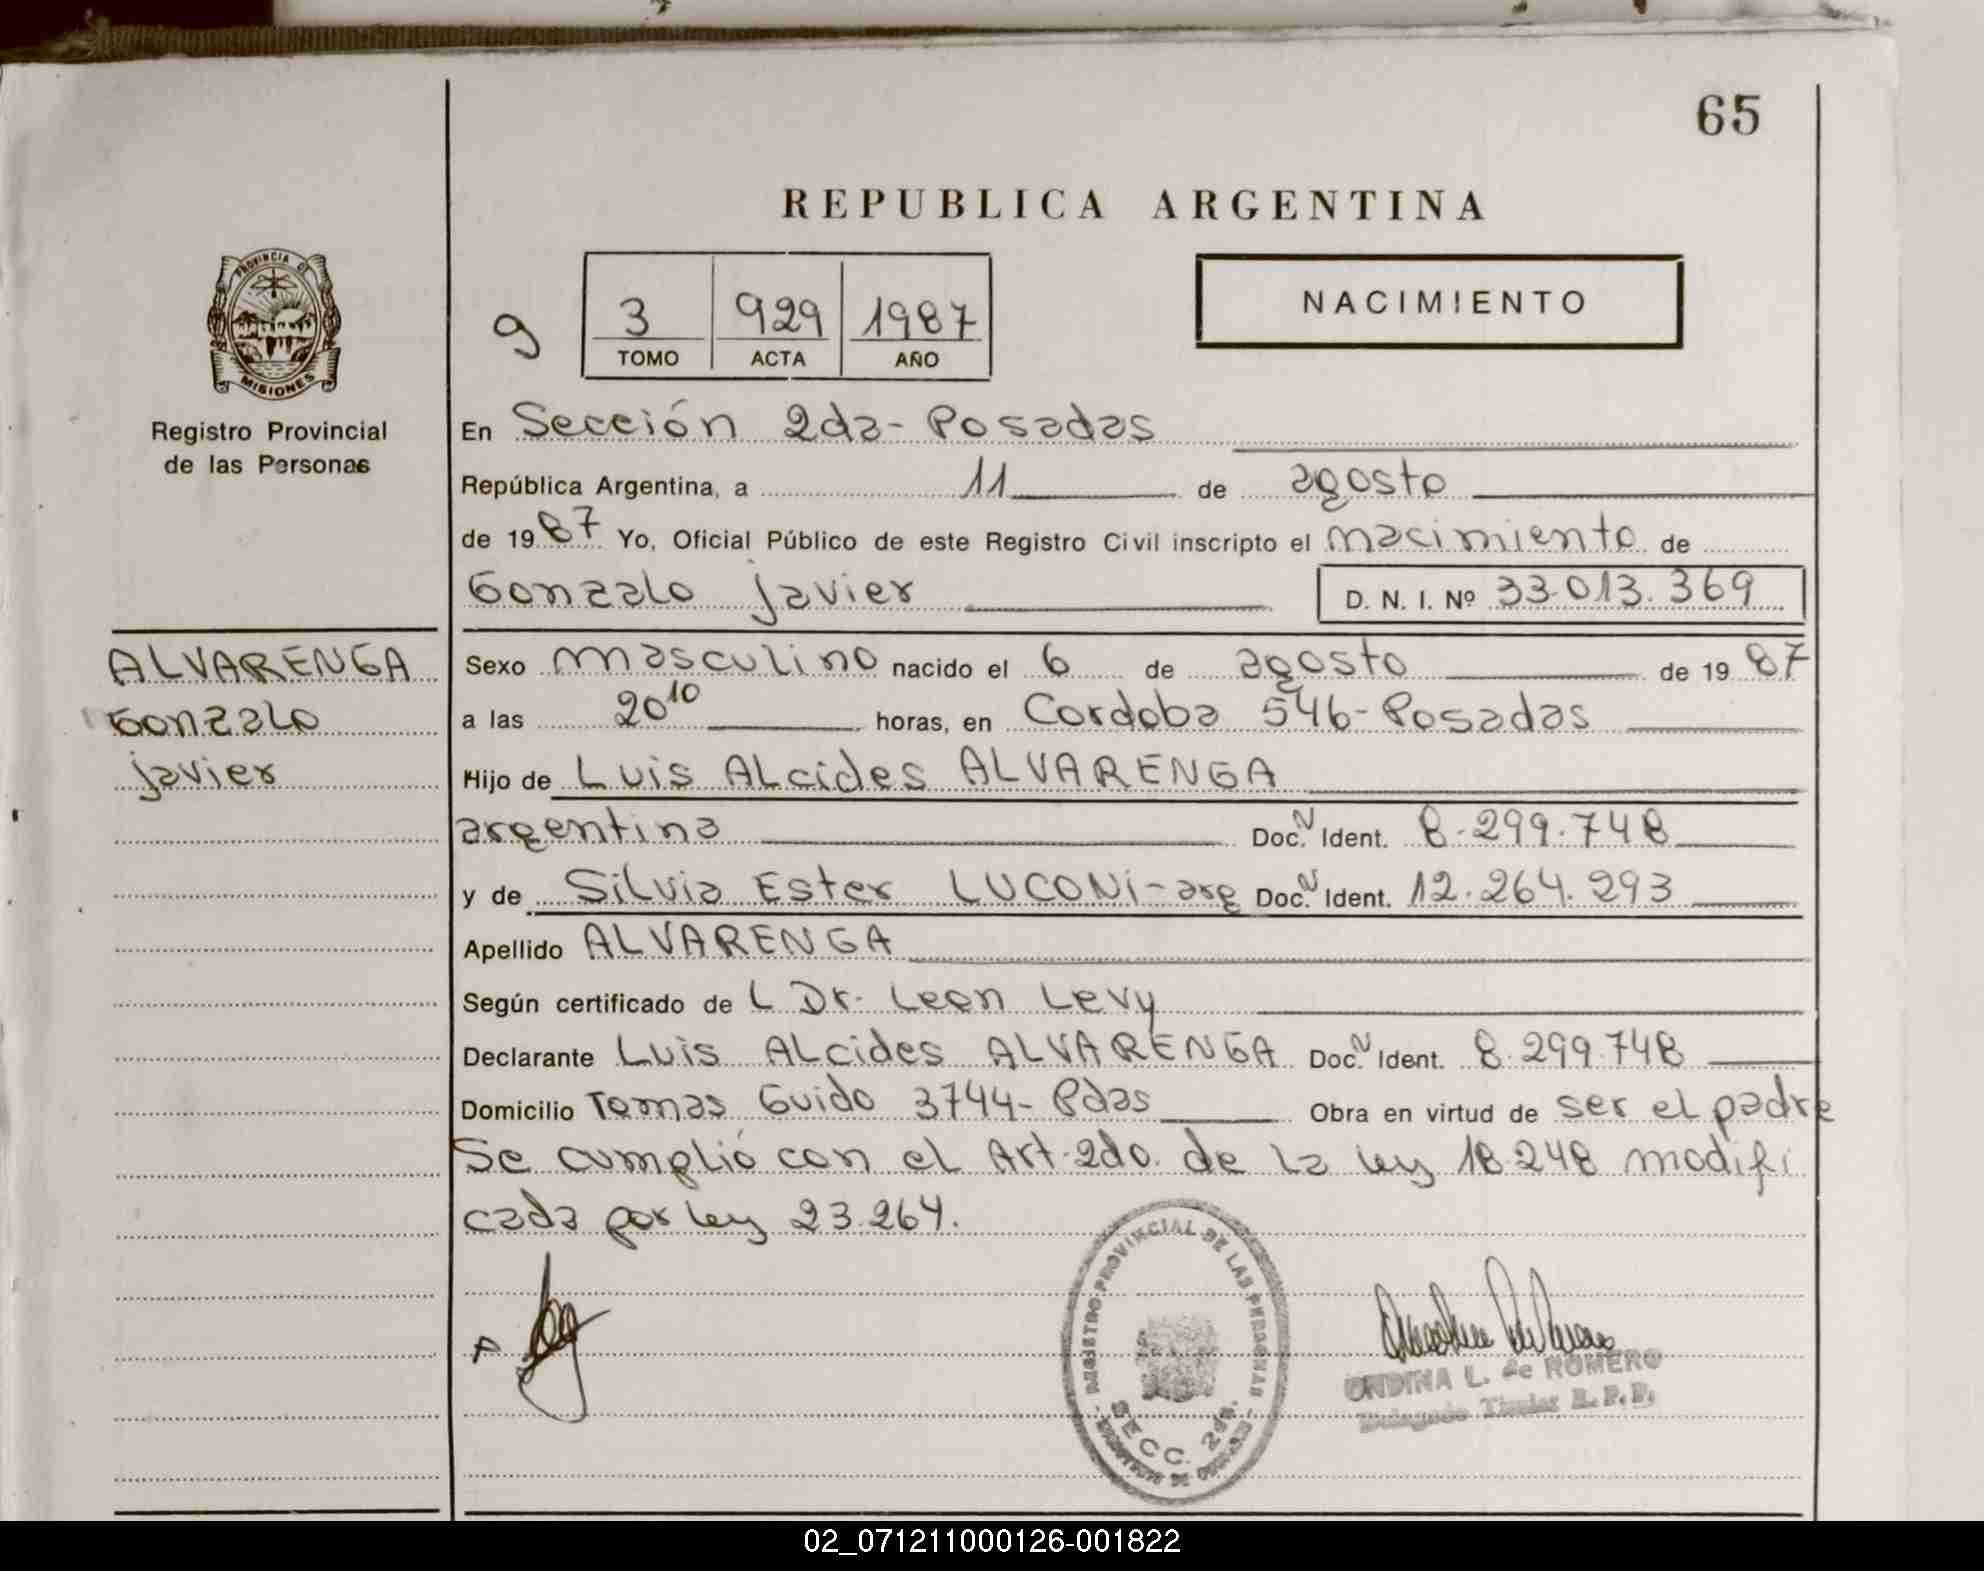 65
REPUBLICA ARGENTINA
PROVINCIA DE
MISIONES
Registro Provincial
de las Personas
9
3 929 1987
TOMO ACTA AÑO
NACIMIENTO
En Sección 2da- Posadas
República Argentina, a 11 de agosto
de 1987 Yo, Oficial Público de este Registro Civil inscripto el nacimiento de
Gonzalo Javier D. N. I. Nº 33.013.369
ALVARENGA
Gonzalo
Javier
Sexo masculino nacido el 6 de agosto de 1987
a las 20¹⁰ horas, en Cordoba 546- Posadas
Hijo de Luis Alcides ALVARENGA
argentina Doc. N Ident. 8.299.748
y de Silvia Ester LUCONi-arg Doc. N Ident. 12.264.293
Apellido ALVARENGA
Según certificado de L Dr. Leon Levy
Declarante Luis Alcides ALVARENGA Doc. N Ident. 8.299.748
Domicilio Tomas Guido 3744- Pdas Obra en virtud de ser el padre
Se cumplió con el Art. 2do. de la ley 18.248 modifi
cada por ley 23.264.
REGISTRO PROVINCIAL DE LAS PERSONAS
SECC. 2da.
ONDINA L. de ROMERO
Delegado Titular R. P. P.
02_071211000126-001822